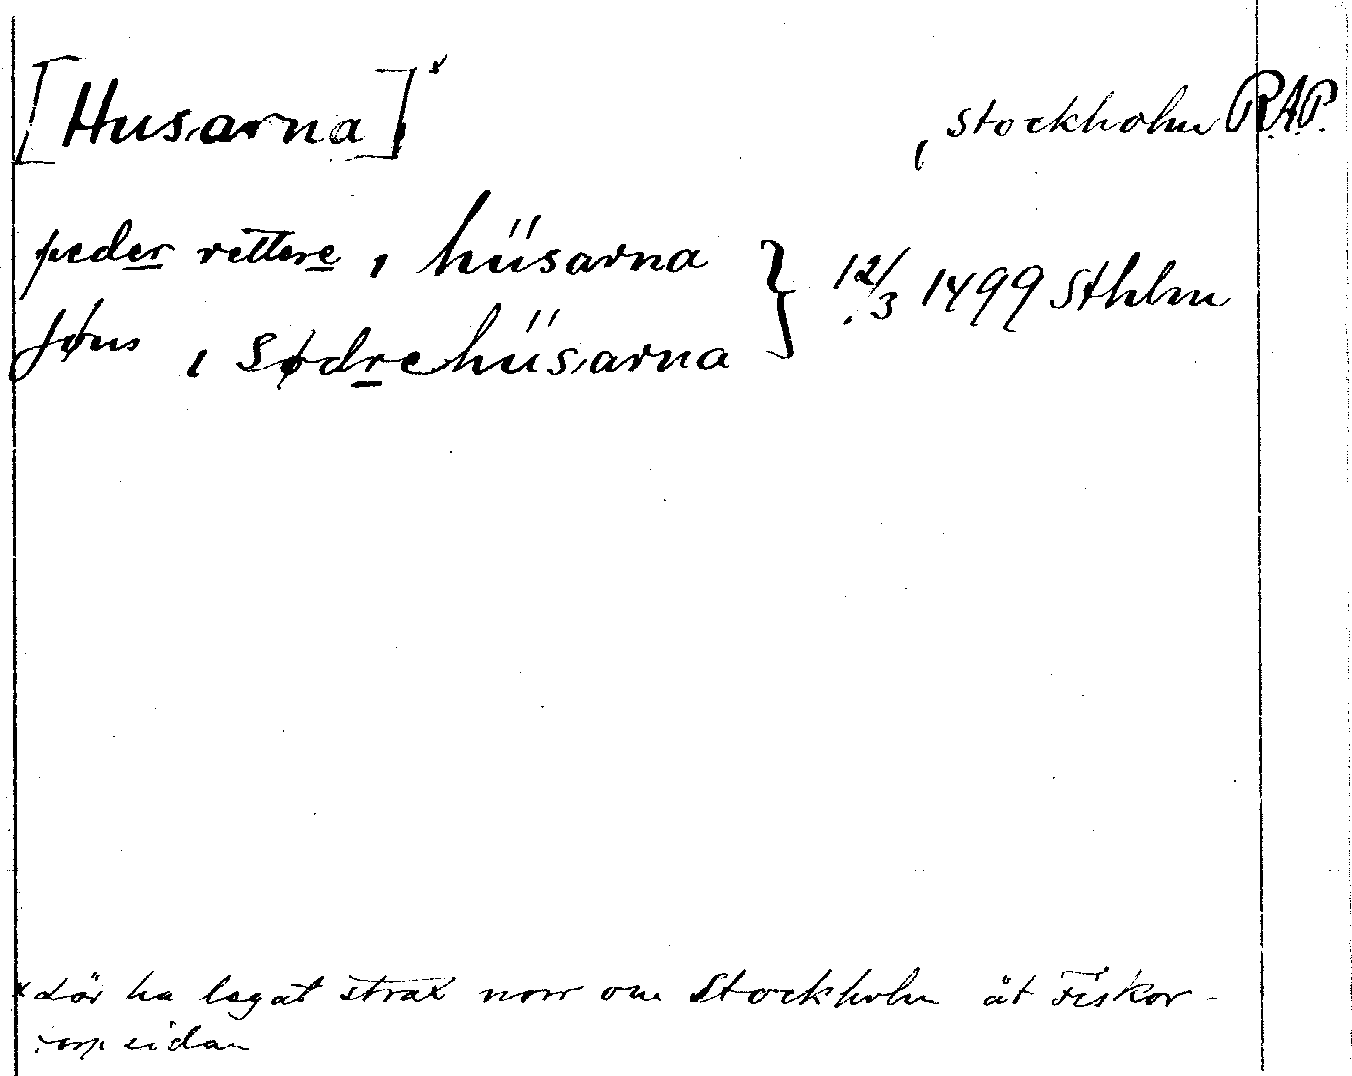 [Husarna]x , Stockholm R.A.P.
peder rettere , hüsarna } 12/3 1499 Sthlm
Jøns , Sødrehüsarna
x Lär ha legat strax norr om Stockholm åt Fiskar-
torpssidan